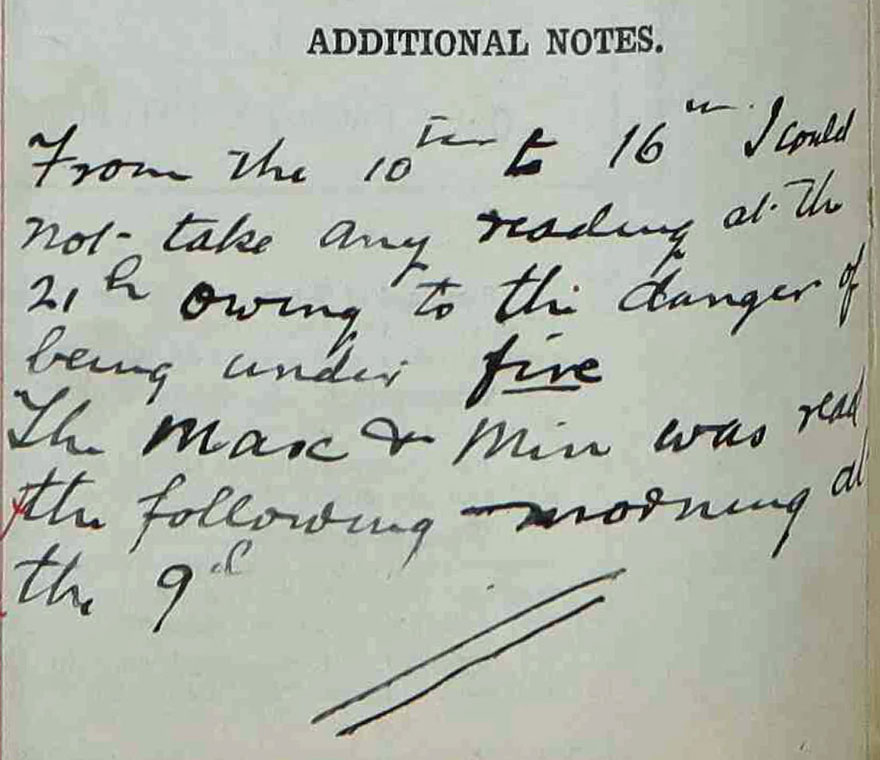 ADDITIONAL NOTES.
From the 10th to 16th I could
not take any reading at the
21h owing to the danger of
being under fire
The Max & Min was read
the following morning at
the 9h